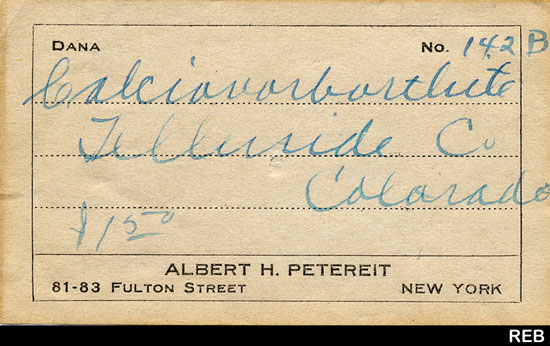 DANA No. 142 B
Calciovorborthite
Telluride Co
Colorado
$1 50
ALBERT H. PETEREIT
81-83 FULTON STREET NEW YORK
REB